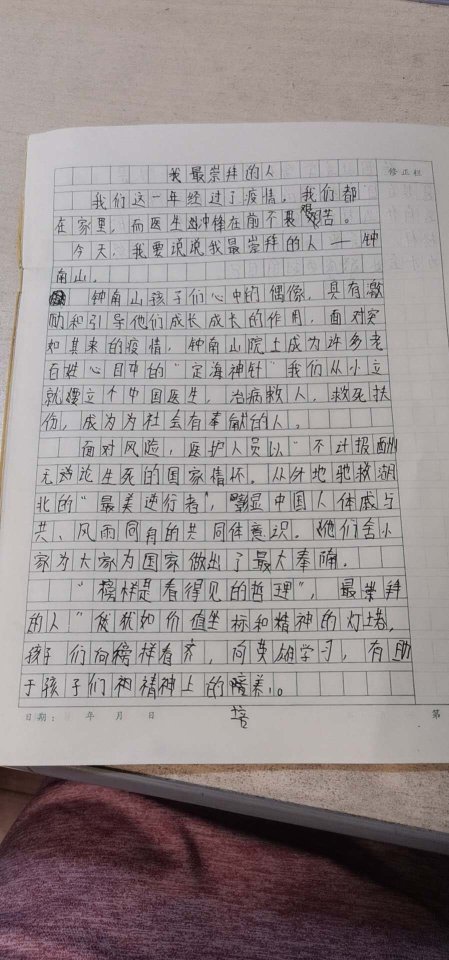 我最崇拜的人
修正栏
我们这一年经过了疫情，我们都
在家里，而医生却冲锋在前不畏艰苦。
今天，我要说说我最崇拜的人——钟
南山。
钟南山孩子们心中的偶像，具有激
励和引导他们成长成长的作用，面对突
如其来的疫情，钟南山院士成为许多老
百姓心目中的"定海神针"我们从小立
就要立个中国医生，治病救人，救死扶
伤，成为为社会有奉献的人。
面对风险，医护人员以"不计报酬
无论生死的国家情怀。从外地驰援湖
北的"最美逆行者"，彰显中国人休戚与
共、风雨同舟的共同体意识。他们舍小
家为大家为国家做出了最大奉献。
"榜样是看得见的哲理"，最崇拜
的人"犹如价值坐标和精神的灯塔，
孩子们向榜样看齐，向英雄学习，有助
于孩子们精神上的培养。
日期： 年 月 日
第